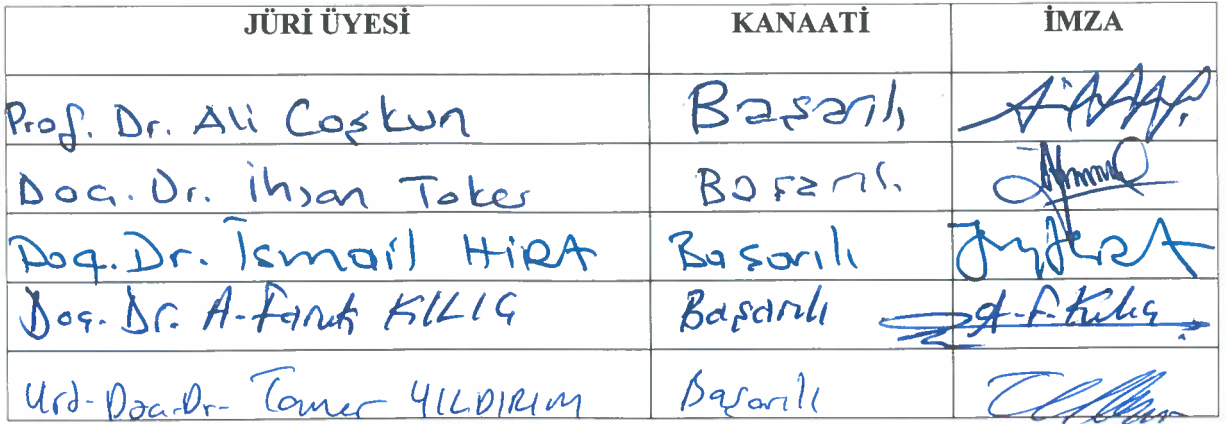 JÜRİ ÜYESİ KANAATİ İMZA
Prof. Dr. Ali Coşkun Başarılı
Doç. Dr. İhsan Toker Başarılı
Doç. Dr. İsmail HİRA Başarılı
Doç. Dr. A. Faruk KILIÇ Başarılı A. F. Kılıç
Yrd. Doç. Dr. Tamer YILDIRIM Başarılı